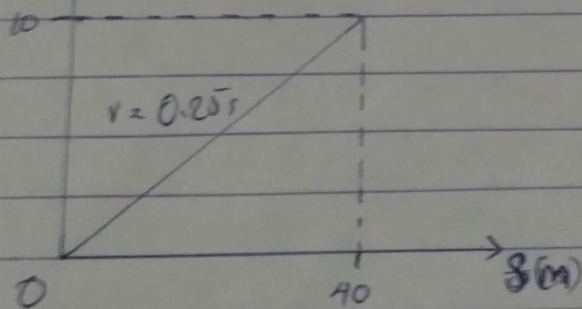 10
v = 0.25s
0
40
s(m)